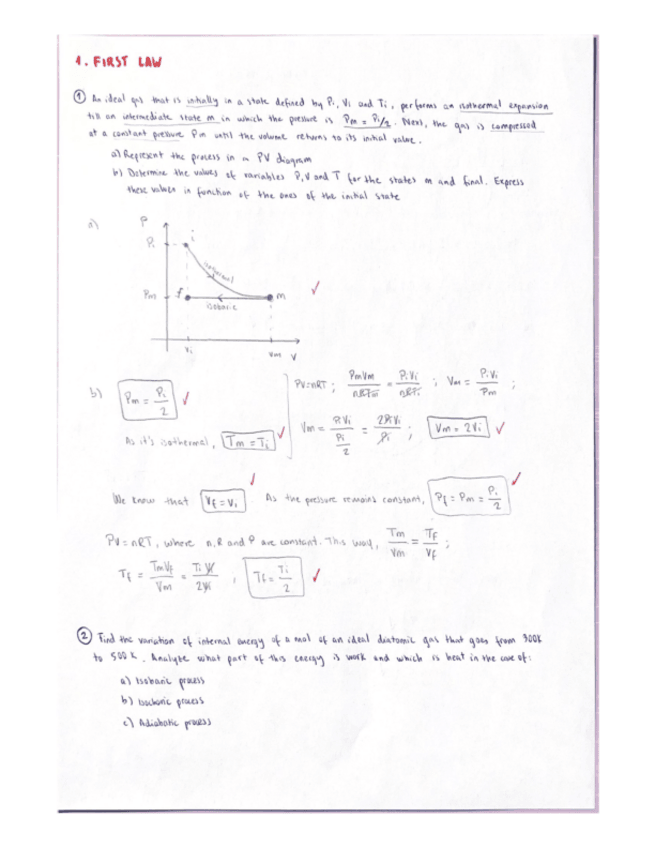 1. FIRST LAW
① An ideal gas that is initially in a state defined by Pi, Vi and Ti, performs an isothermal expansion
till an intermediate state m in which the pressure is Pm = Pi/2. Next, the gas is compressed
at a constant pressure Pm until the volume returns to its initial value.
a) Represent the process in a PV diagram
b) Determine the values of variables P, V and T for the states m and final. Express
these values in function of the ones of the initial state
a)
P
Pi
i
isothermal
Pm
f
m
isobaric
Vi
Vm
V
b) Pm = Pi/2
PV=nRT ; PmVm/nRTm = PiVi/nRTi ; Vm = PiVi/Pm ;
As it's isothermal, Tm = Ti
Vm = PiVi/(Pi/2) = 2PiVi/Pi ; Vm = 2Vi
We know that Vf = Vi. As the pressure remains constant, Pf = Pm = Pi/2
PV=nRT, where n, R and P are constant. This way, Tm/Vm = Tf/Vf ;
Tf = TmVf/Vm = TiVi/2Vi , Tf = Ti/2
② Find the variation of internal energy of a mol of an ideal diatomic gas that goes from 300K
to 500K. Analyze what part of this energy is work and which is heat in the case of:
a) Isobaric process
b) Isochoric process
c) Adiabatic process